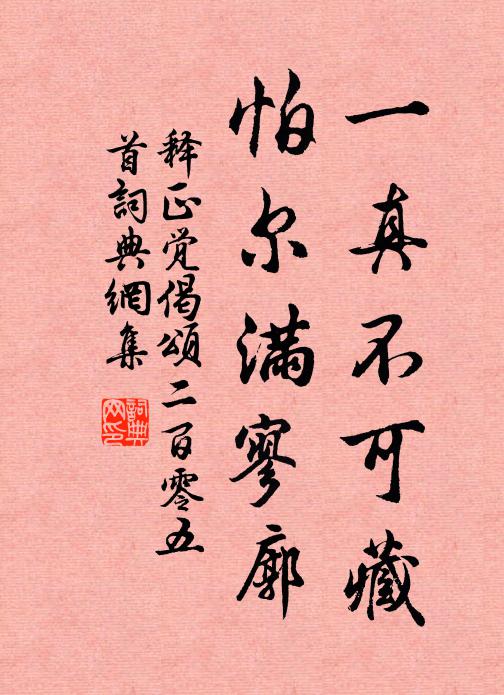 一真不可藏
怕尔满寥廓
释正觉偈頌二百零五
首詞典網集
詞典
网印